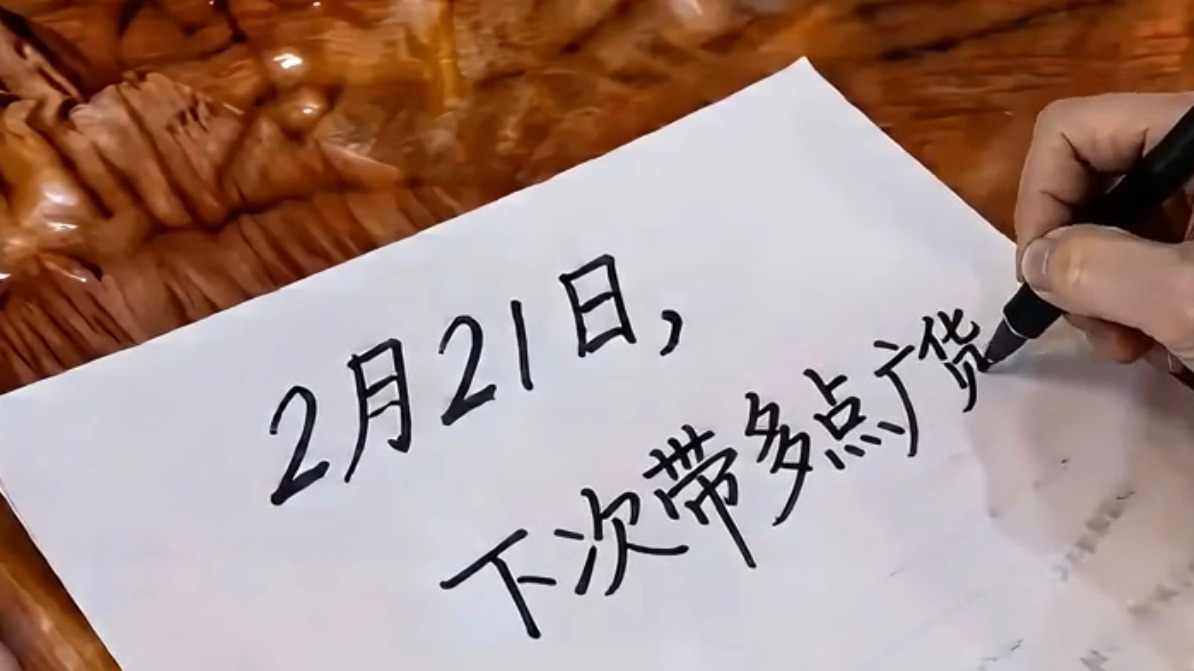 2月21日,
下次带多点广货